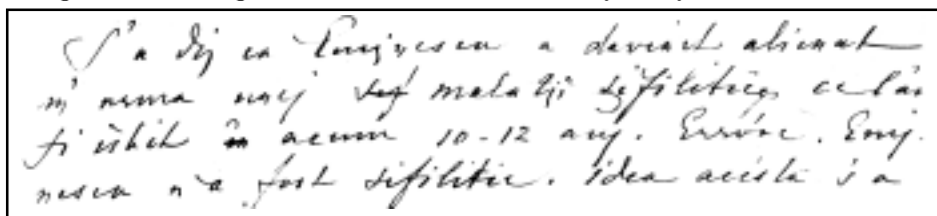 S'a dis ca Eminescu a deviat alienat
in urma unei maladii sifilitice, ce l-ar
fi isbit acum 10-12 ani. Eroare. Emi-
nescu n'a fost sifilitic. Idea acésta s'a